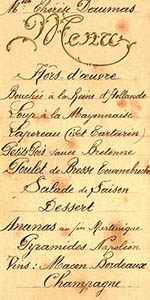 Mlle Thérèse Daumas
Menu
Hors d'œuvre
Bouchée à la Reine d'Hollande
Loup à la Mayonnaise
Lapereau (rôt Tartarin)
Petits Pois sauce Bretonne
Poulet de Bresse Tournebroche
Salade de Saison
Dessert
Ananas au fin Martinique
Pyramides Napoléon
Vins : Macon, Bordeaux
Champagne